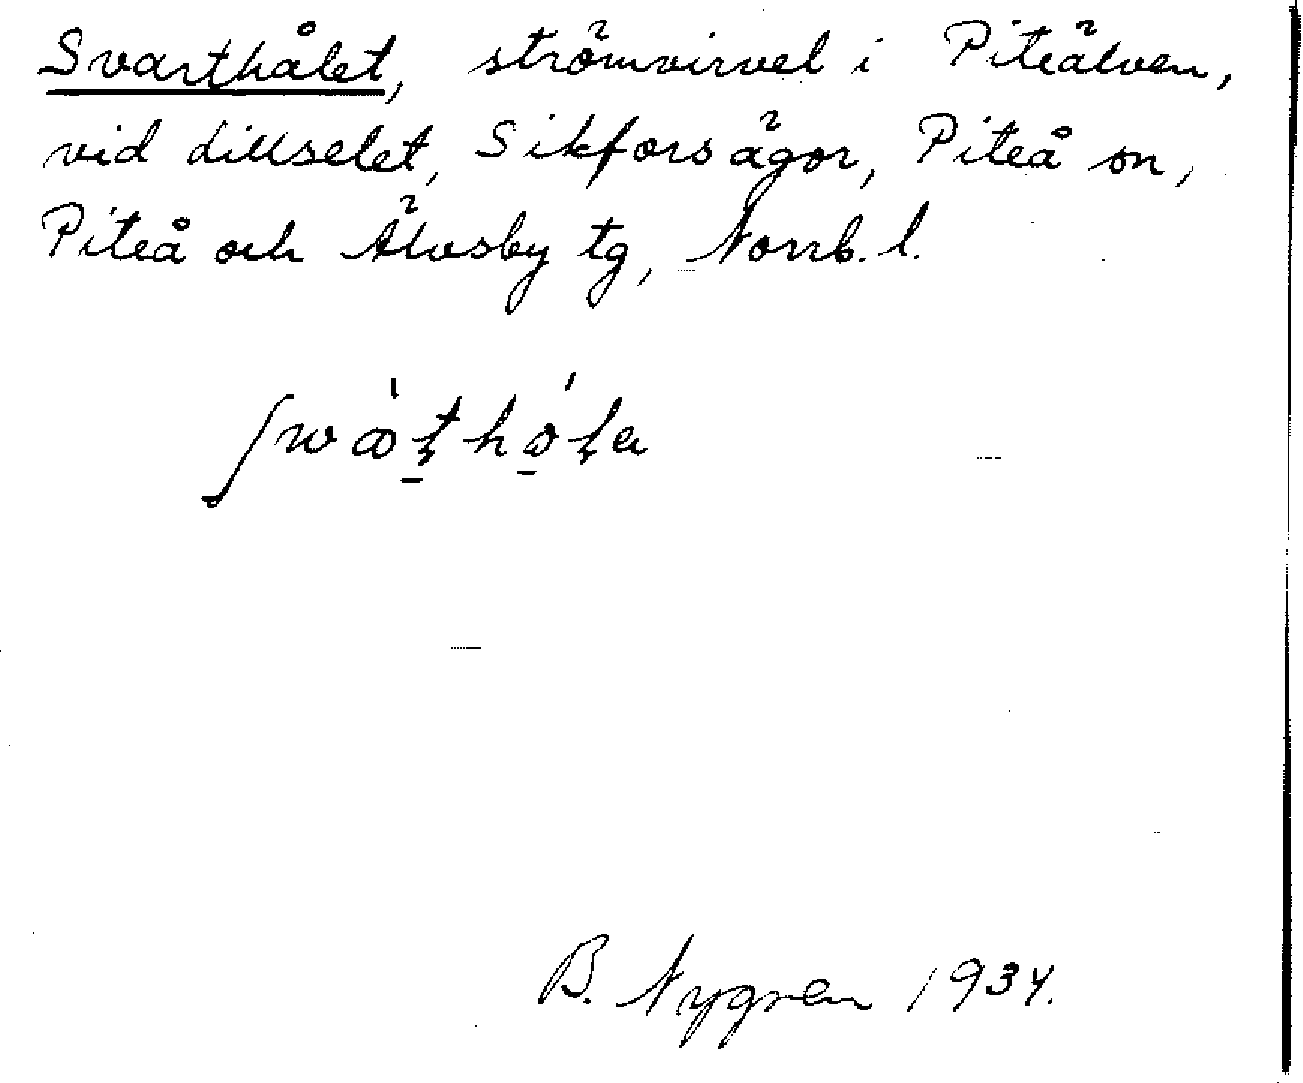 Svarthålet, strömvirvel i Piteälven,
vid Lillselet, Sikfors ägor, Piteå sn,
Piteå och Älvsby tg, Norrb. l.
B. Nygren 1934.